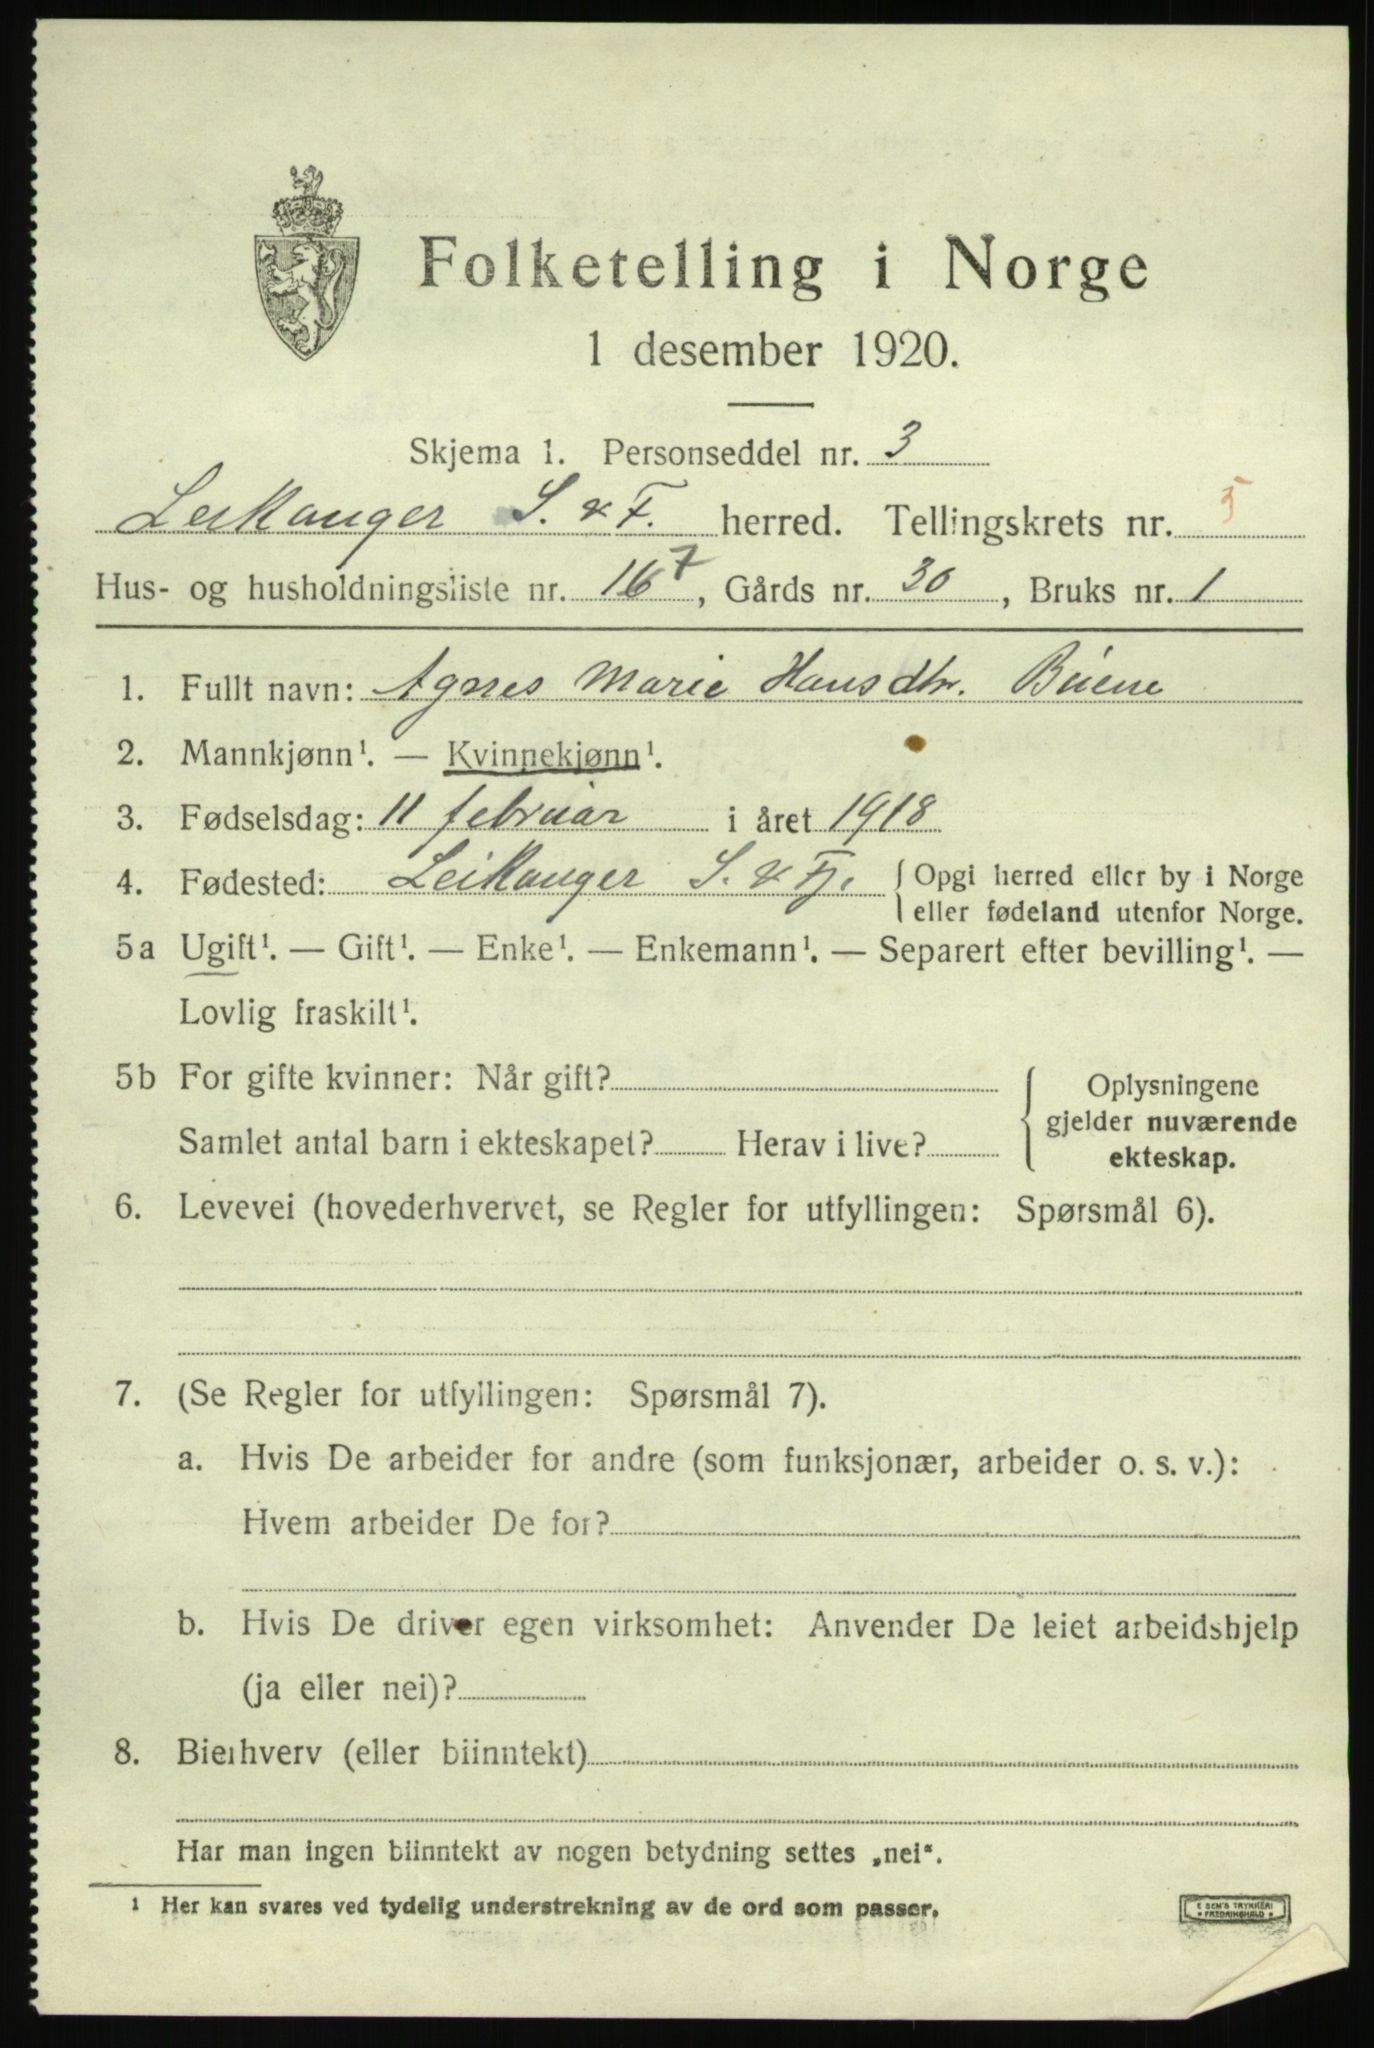 Folketelling i Norge
1 desember 1920.
Skjema 1. Personseddel nr. 3
Leikanger S. & F. herred. Tellingskrets nr. 5
Hus- og husholdningsliste nr. 16 7, Gårds nr. 30, Bruks nr. 1
1. Fullt navn: Agnes Marie Hansdtr. Büene
2. Mannkjønn¹. — Kvinnekjønn¹.
3. Fødselsdag: 11 februar i året 1918
4. Fødested: Leikanger S. & Fj. { Opgi herred eller by i Norge
eller fødeland utenfor Norge.
5a Ugift¹. — Gift¹. — Enke¹. — Enkemann¹. — Separert efter bevilling¹. —
Lovlig fraskilt¹.
5b For gifte kvinner: Når gift?
Samlet antal barn i ekteskapet? Herav i live?
Oplysningene
gjelder nuværende
ekteskap.
6. Levevei (hovederhvervet, se Regler for utfyllingen: Spørsmål 6).
7. (Se Regler for utfyllingen: Spørsmål 7).
a. Hvis De arbeider for andre (som funksjonær, arbeider o. s. v.):
Hvem arbeider De for?
b. Hvis De driver egen virksomhet: Anvender De leiet arbeidshjelp
(ja eller nei)?
8. Bierhverv (eller biinntekt)
Har man ingen biinntekt av nogen betydning settes „nei“.
¹ Her kan svares ved tydelig understrekning av de ord som passer.